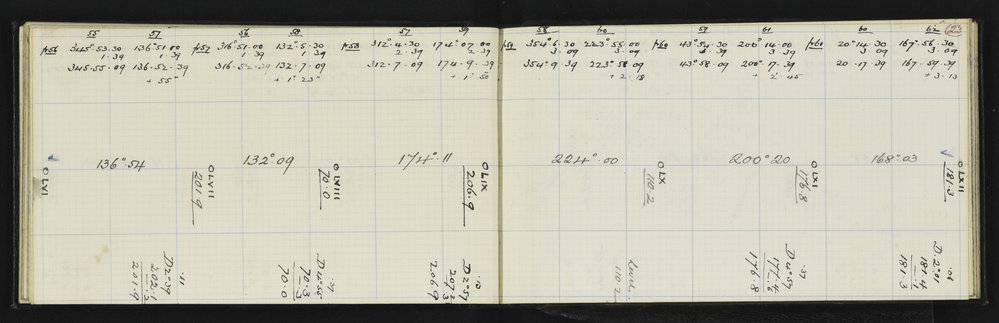 55 57 56 58 57 59
fr 56 345°.53.30 136°.51.00 fr 57 316°.51.00 132°.5.30 fr 58 312°.4.30 174°.07.00
1.39 1.39 1.39 1.39 2.39 2.39
345.55.09 136.52.39 316.52.39 132.7.09 312.7.09 174.9.39
+ 55" + 1' 23" + 1' 50
136°.54 132°09 174°.11
O LVI
O LVII
201.9
O LVIII
70.0
O LIX
206.9
D 2°39
202.1
.2
201.9
70.3
.3
70.0
D 2°57
207.2
.3
206.9
58 60 59 61 60 62 23
fr 59 354°.6.30 223°.55.00 fr 60 43°.54.30 200°.14.00 fr 61 20°.14.30 167°.56.30
3.09 3.09 3.39 3.39 3.09 3.09
354°.9.39 223°.58.09 43°.58.09 200°.17.39 20.17.39 167.59.39
+ 2.18 + 2' 45 + 3.13
224°.00 200°20 168°.03
O LX
110.2
O LXI
176.8
O LXII
181.3
Level
110.2
D 4°.57
177.4
.6
176.8
D.2°01
181.4
.1
181.3